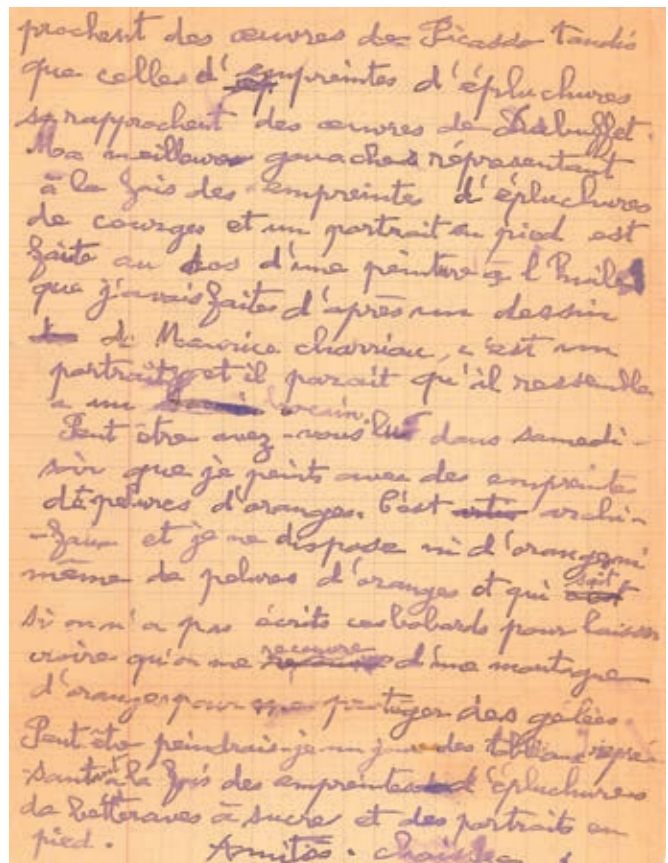 prochent des œuvres de Picasso tandis
que celles d'empreintes d'épluchures
se rapprochent des œuvres de Dubuffet.
Ma meilleure gouaches réprésentant
à la fois des empreintes d'épluchures
de courges et un portrait en pied est
faite au dos d'une peinture à l'huile
que j'avais faites d'après un dessin
de Maurice charriau, c'est un
portrait et il parait qu'il ressemble
a un
Peut être avez-vous lu dans samedi-
soir que je peints avec des empreintes
de pelures d'oranges. C'est archi-
-faux et je ne dispose ni d'oranges ni
même de pelures d'oranges et qui sait
si on n'a pas écrits ces bobards pour laisser
croire qu'on me recouvre d'une montagne
d'oranges pour me protéger des gelées.
Peut être peindrais-je un jour des tableaux repré-
santant à la fois des empreintes d'épluchures
de betteraves à sucre et des portraits en
pied. Amitiés.